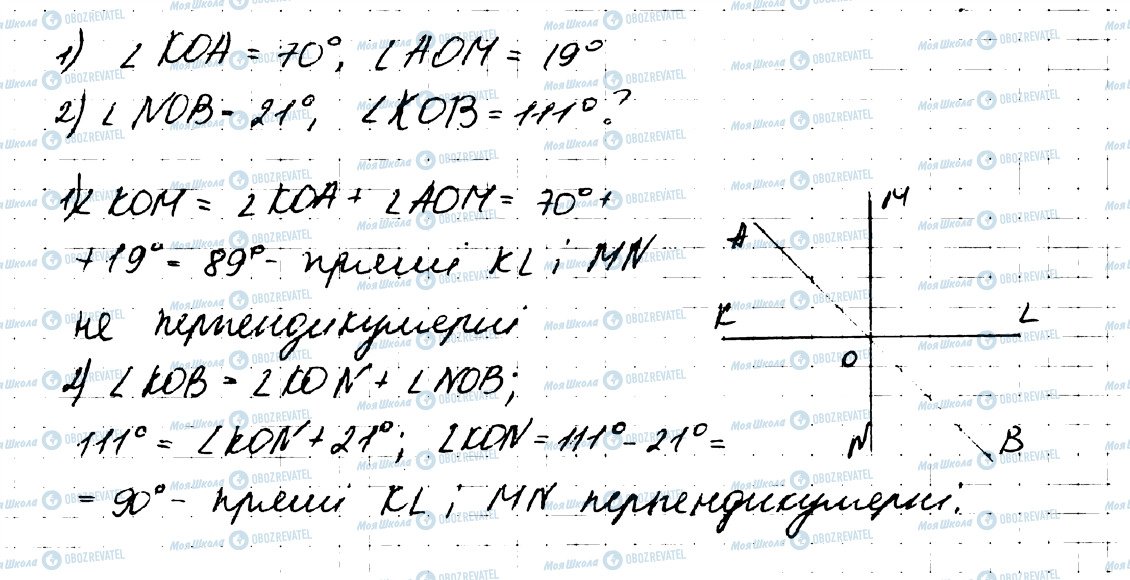 1) ∠KOA = 70°, ∠AOM = 19°
2) ∠NOB = 21°, ∠KOB = 111°?
1) ∠KOM = ∠KOA + ∠AOM = 70° +
+ 19° = 89° - прямі KL і MN
не перпендикулярні
2) ∠KOB = ∠KON + ∠NOB;
111° = ∠KON + 21°; ∠KON = 111° - 21° =
= 90° - прямі KL і MN перпендикулярні.
M
A
K
L
O
N
B
МояШкола OBOZREVATEL